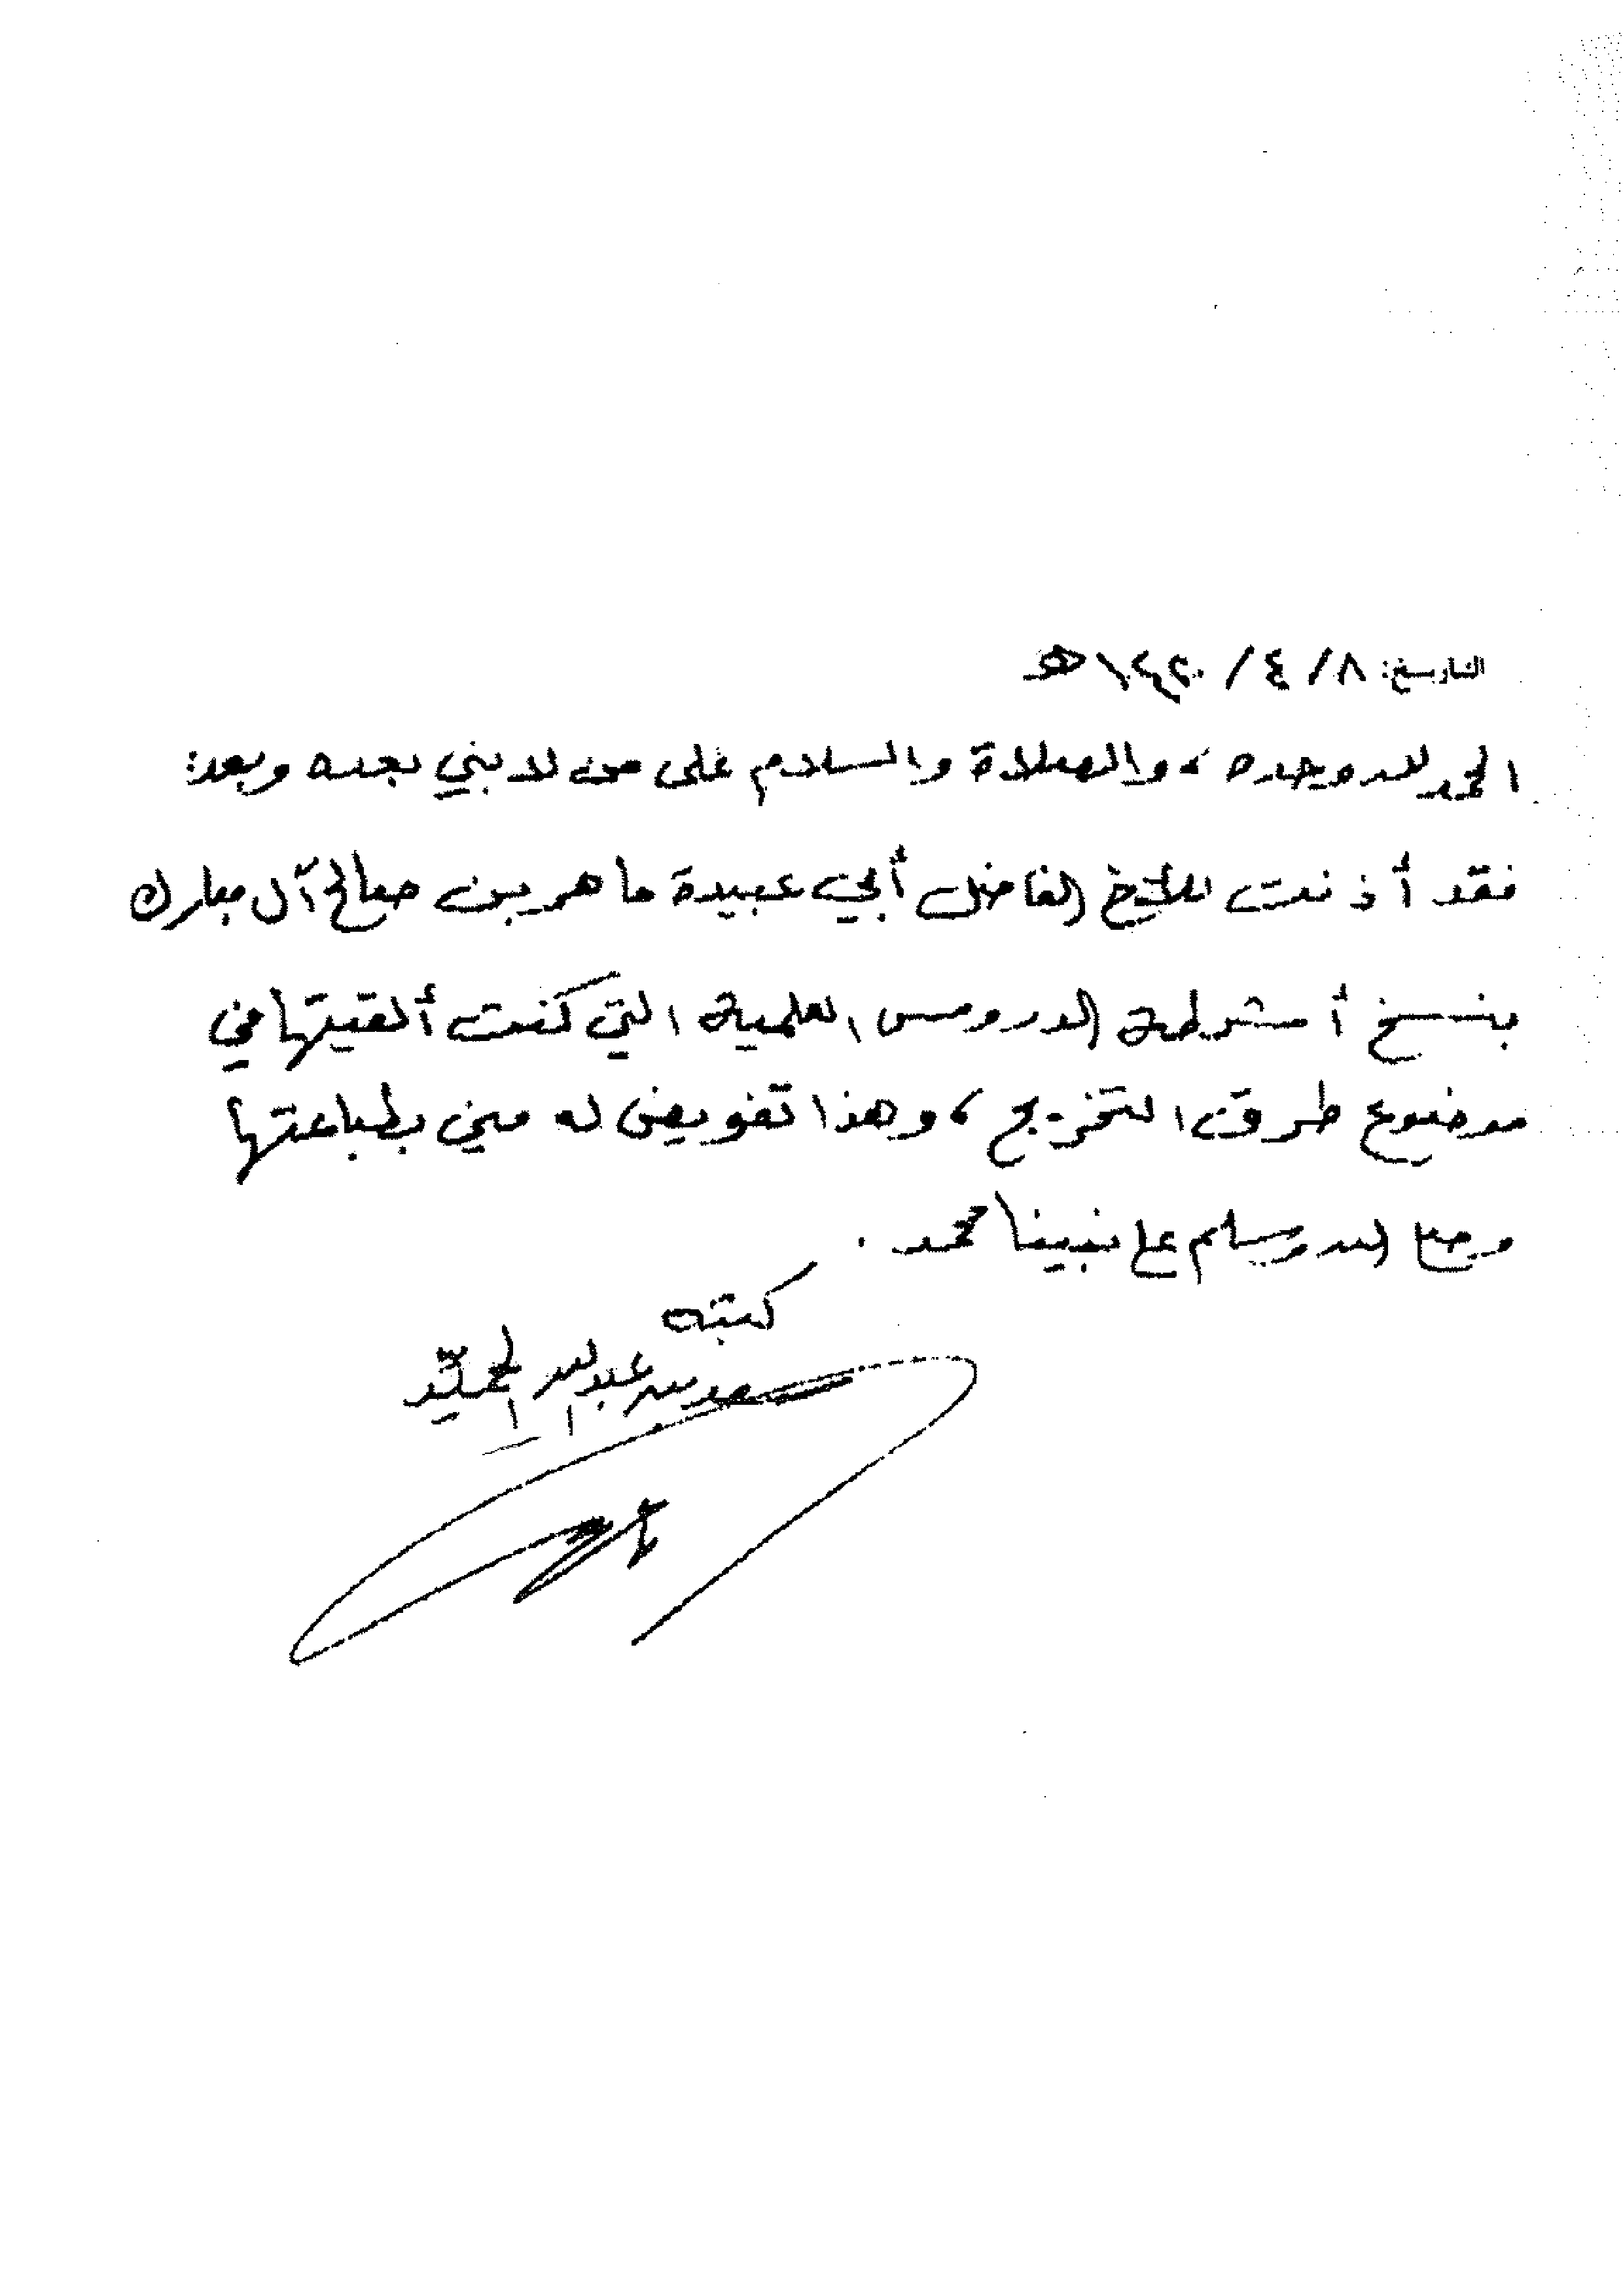 التاريخ: ٨/ ٤/ ١٤٢٠ هـ
الحمد لله وحده، والصلاة والسلام على من لا نبي بعده وبعد:
فقد أذنت للأخ الفاضل أبي عبيدة ماهر بن صالح آل مبارك
بنسخ أشرطة الدروس العلمية التي كنت ألقيتها في
موضوع طرق التخريج، وهذا تفويض له مني بطباعتها
وصلى الله وسلم على نبينا محمد.
كتبه
سعد بن عبدالله الحميّد